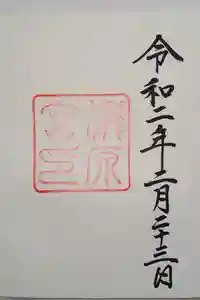 令和二年二月二十三日